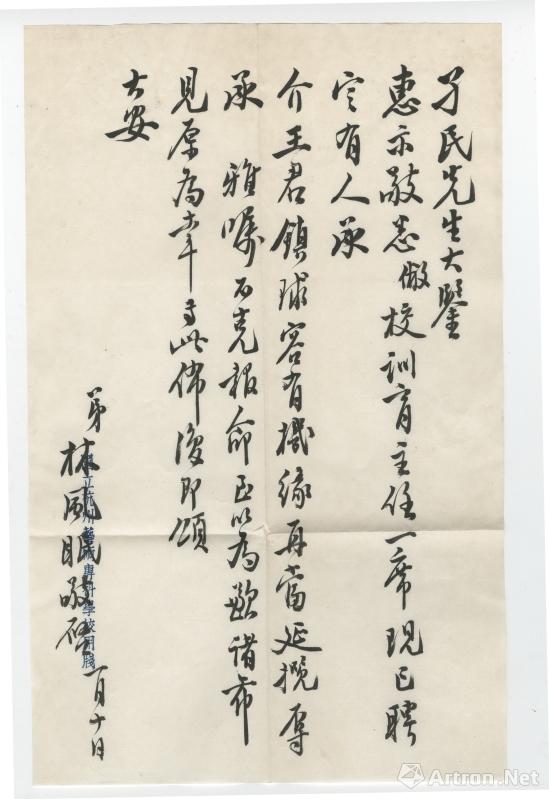 孑民先生大鑒
惠示敬悉敝校訓育主任一席現已聘
定有人承
介王君鎮球容有機緣再當延攬辱
承 雅囑不克報命至以為歉諸希
見原為幸專此佈復即頌
大安
弟 林風眠敬啓 一月十日
國立杭州藝術專科學校用牋
Artron.Net